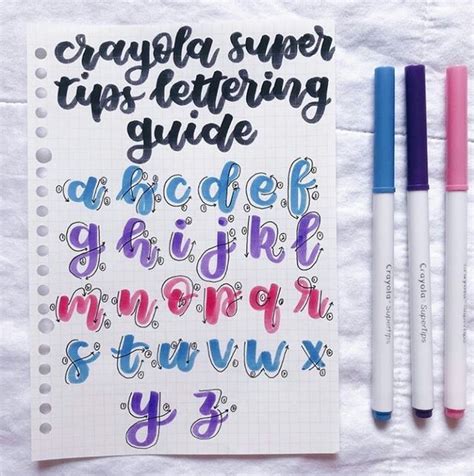 crayola super
tips lettering
guide
a b c d e f
g h i j k l
m n o p q r
s t u v w x
y z
Crayola SuperTips
Crayola SuperTips
Crayola SuperTips